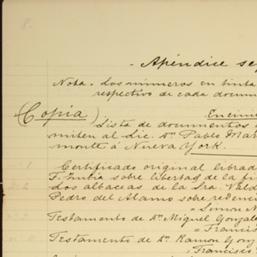 - Apéndice se
Nota - Los números en tinta
respectivo de cada docume
(Copia)
Enume
Lista de documentos
miten al Lic. Dn Pablo Mar
monte á Nueva York.
Certificado original librad
F. Zubia sobre libertas de la
dos albaceas de la Sra. Vald
Pedro del Alamo sobre
Simon
Testamento de Dn Miguel Gonzale
Francis
Testamento de Dn Ramon Gonz
Francisco